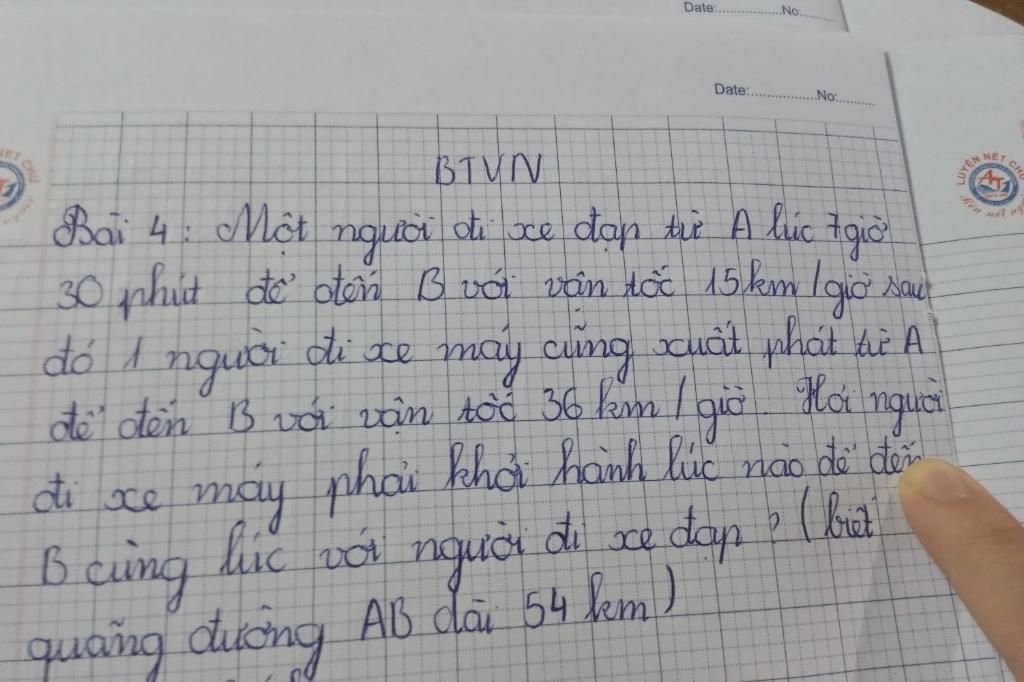 Date:................No:.........
Date:................No:.........
BTVN
Bài 4: Một người đi xe đạp từ A lúc 7giờ
30 phút để đến B với vận tốc 15km/giờ sau
đó 1 người đi xe máy cũng xuất phát từ A
để đến B với vận tốc 36 km/giờ. Hỏi người
đi xe máy phải khởi hành lúc nào để đến
B cùng lúc với người đi xe đạp? (biết
quãng đường AB dài 54 km)
LUYỆN NÉT CHỮ